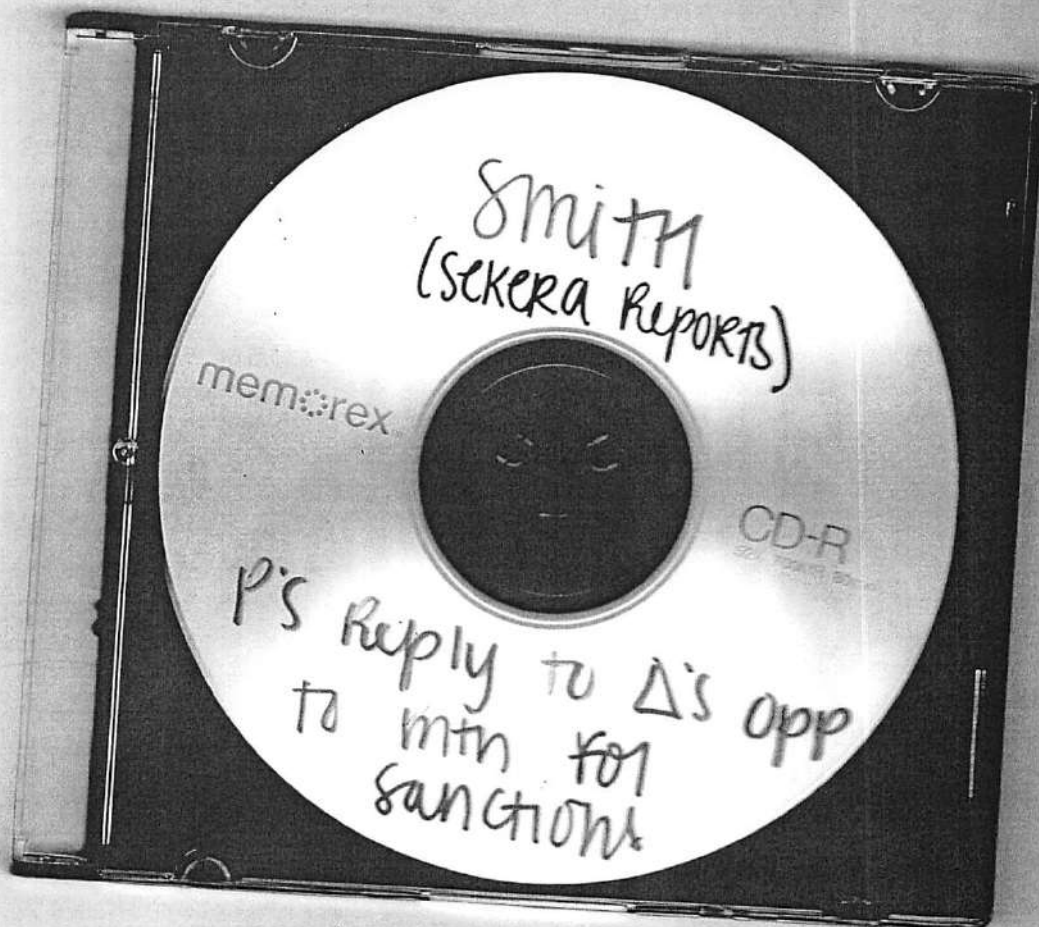 Smith
(Sekera Reports)
memorex
CD-R
P's Reply to Δ's Opp
to mtn for
sanctions